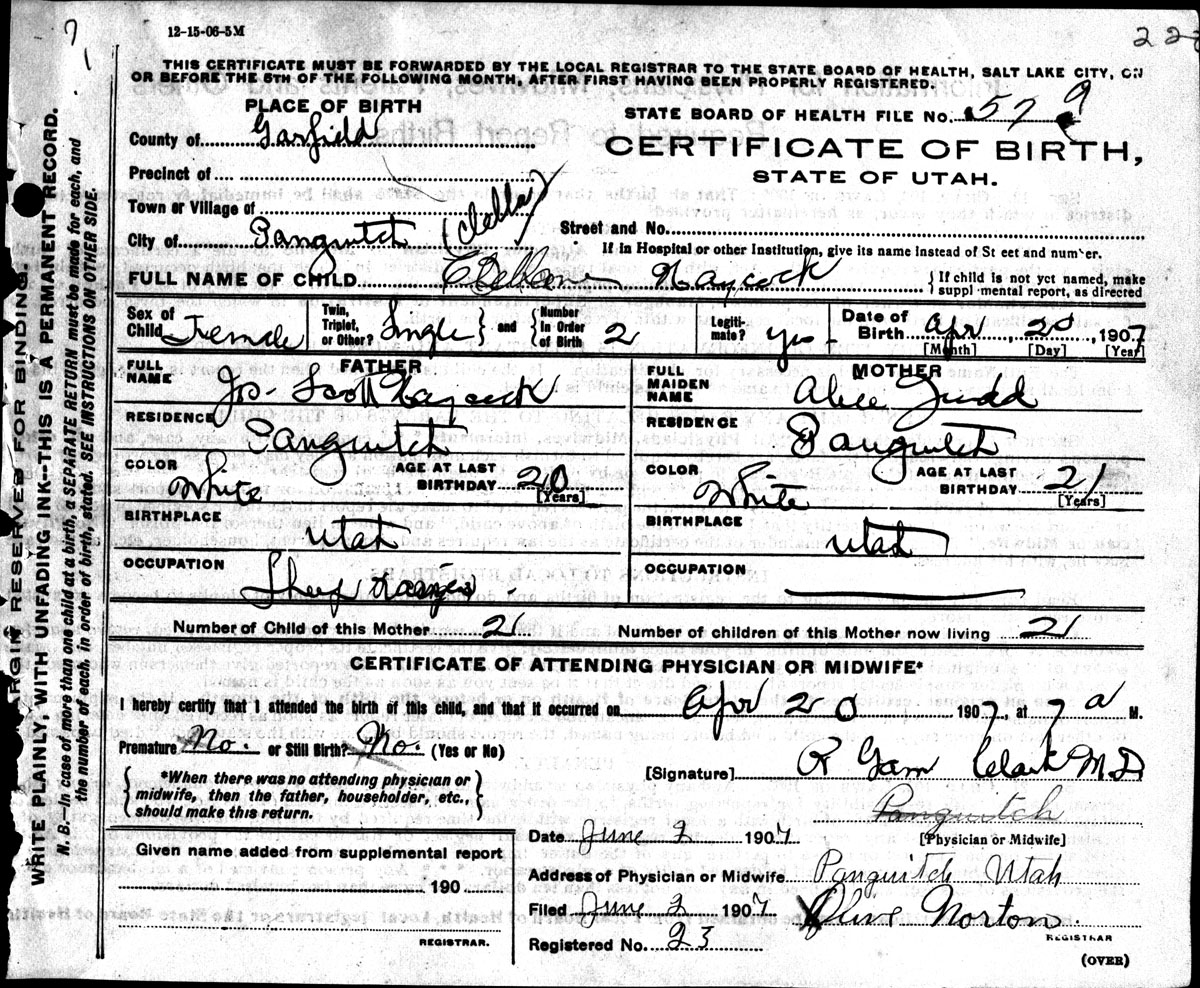 12-15-06-5M
THIS CERTIFICATE MUST BE FORWARDED BY THE LOCAL REGISTRAR TO THE STATE BOARD OF HEALTH, SALT LAKE CITY, ON
OR BEFORE THE 5TH OF THE FOLLOWING MONTH, AFTER FIRST HAVING BEEN PROPERLY REGISTERED.
PLACE OF BIRTH
STATE BOARD OF HEALTH FILE No. 579
County of Garfield
CERTIFICATE OF BIRTH,
STATE OF UTAH.
Precinct of
Town or Village of
Street and No.
City of Panguitch (Clella)
If in Hospital or other Institution, give its name instead of St eet and number.
FULL NAME OF CHILD Haycock
{If child is not yet named, make
suppl mental report, as directed
Sex of Child Female
Twin, Triplet, or Other? Single } and { Number In Order of Birth 2
Legiti- mate? yes
Date of Birth Apr, 20, 1907
[Month] [Day] [Year]
FATHER
FULL NAME Jos. Scott Haycock
MOTHER
FULL MAIDEN NAME Alice Judd
RESIDENCE Panguitch
RESIDENCE Panguitch
COLOR White AGE AT LAST BIRTHDAY 20 [Years]
COLOR White AGE AT LAST BIRTHDAY 21 [Years]
BIRTHPLACE Utah
BIRTHPLACE Utah
OCCUPATION Sheep
OCCUPATION
Number of Child of this Mother 2
Number of children of this Mother now living 2
CERTIFICATE OF ATTENDING PHYSICIAN OR MIDWIFE*
I hereby certify that I attended the birth of this child, and that it occurred on Apr 20 1907, at 7 a M.
Premature No. or Still Birth? No. (Yes or No)
[Signature] R Garn Clark M.D
{*When there was no attending physician or
midwife, then the father, householder, etc.,
should make this return.}
Panguitch
Date June 2 1907
[Physician or Midwife]
Given name added from supplemental report
190
REGISTRAR.
Address of Physician or Midwife Panguitch Utah
Filed June 2 1907 Olive Norton
REGISTRAR
Registered No. 23
(OVER)
MARGIN RESERVED FOR BINDING.
WRITE PLAINLY, WITH UNFADING INK--THIS IS A PERMANENT RECORD.
N. B.—In case of more than one child at a birth, a SEPARATE RETURN must be made for each, and
the number of each, in order of birth, stated. SEE INSTRUCTIONS ON OTHER SIDE.